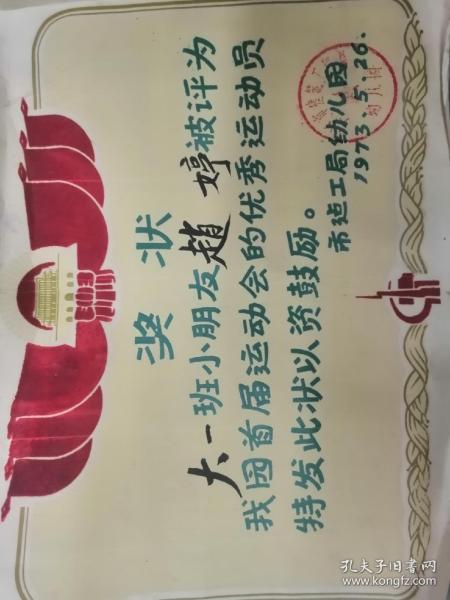 奖状
大一班小朋友赵婷被评为
我园首届运动会的优秀运动员
特发此状以资鼓励。
市造工局幼儿园
1973.5.26.
孔夫子旧书网
www.kongfz.com